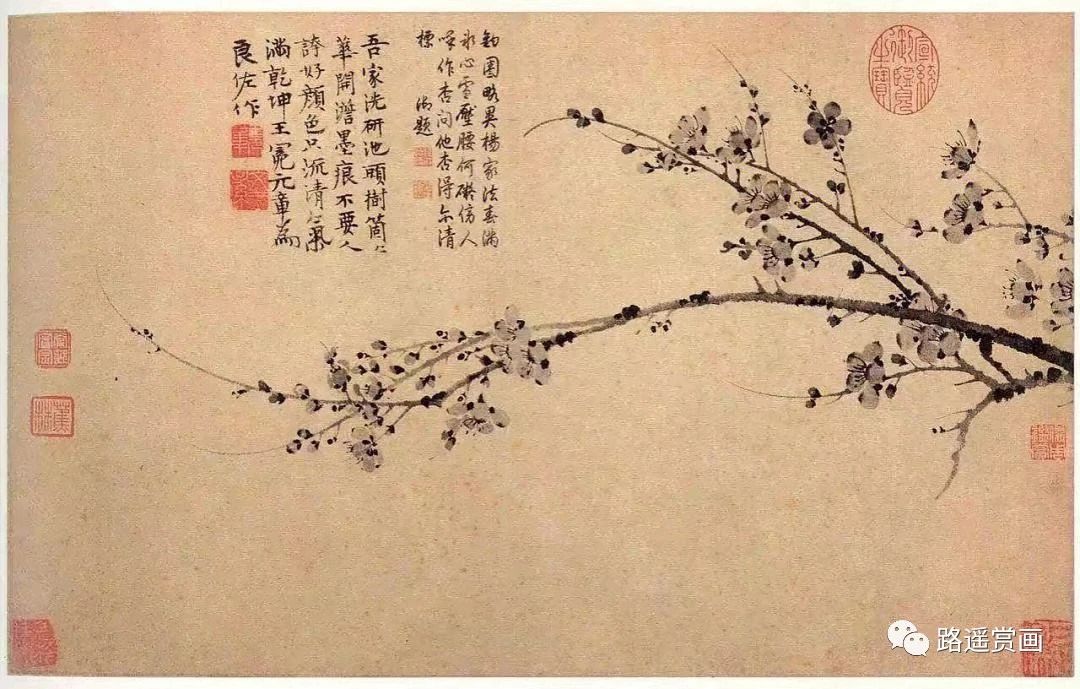 宣統
御覽
之寶
鈎圈略異楊家法春滿
冰心雪壓腰何礙傍人
呼作杏問他杏得尔清
標 御題
吾家洗研池頭樹箇〻
華開澹墨痕不要人
誇好顏色只流清氣
滿乾坤王冕元章為
良佐作
路遥赏画